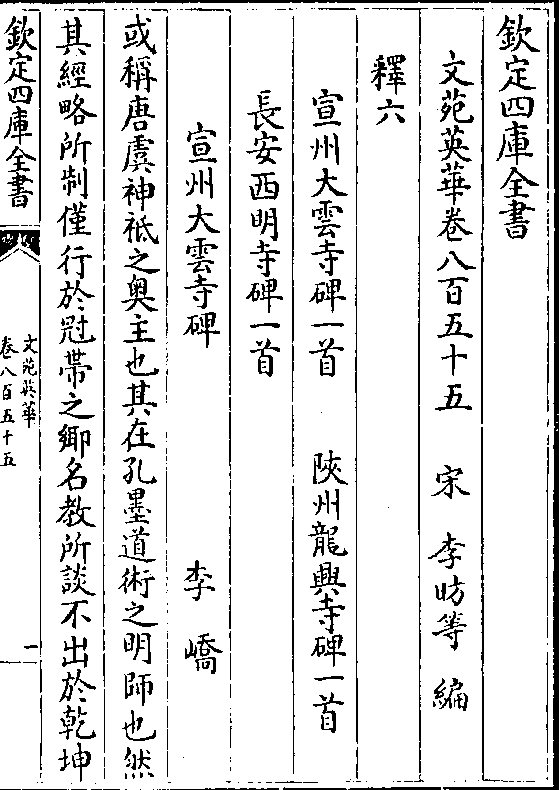 欽定四庫全書
文苑英華卷八百五十五 宋 李昉等 編
釋六
宣州大雲寺碑一首 陜州龍興寺碑一首
長安西明寺碑一首
宣州大雲寺碑 李嶠
或稱唐虞神祇之奥主也其在孔墨道術之明師也然
其經略所制僅行於冠帶之鄉名教所談不出於乾坤
欽定四庫全書
文苑英華
卷八百五十五
一